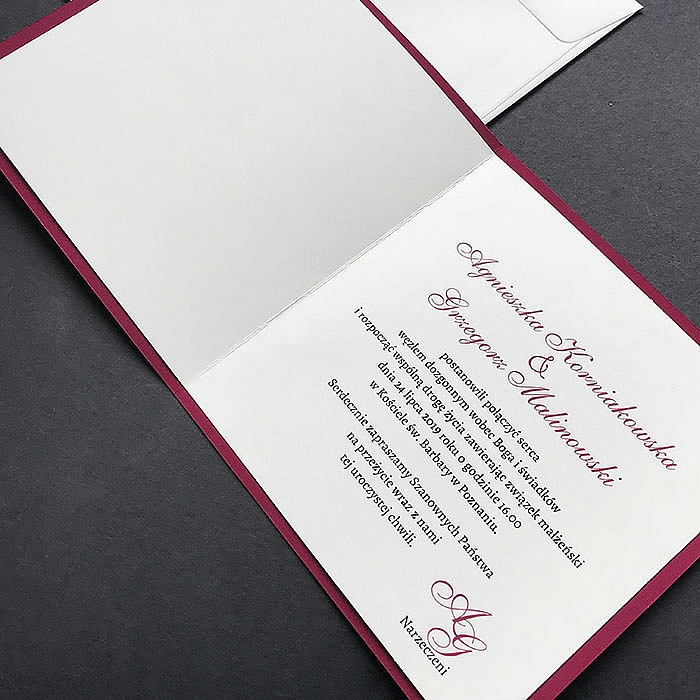 Agnieszka Korniakowska
&
Grzegorz Malinowski
postanowili połączyć serca
węzłem dozgonnym wobec Boga i świadków
i rozpocząć wspólną drogę życia zawierając związek małżeński
dnia 24 lipca 2019 roku o godzinie 16.00
w Kościele św. Barbary w Poznaniu.
Serdecznie zapraszamy Szanownych Państwa
na przeżycie wraz z nami
tej uroczystej chwili.
AG
Narzeczeni